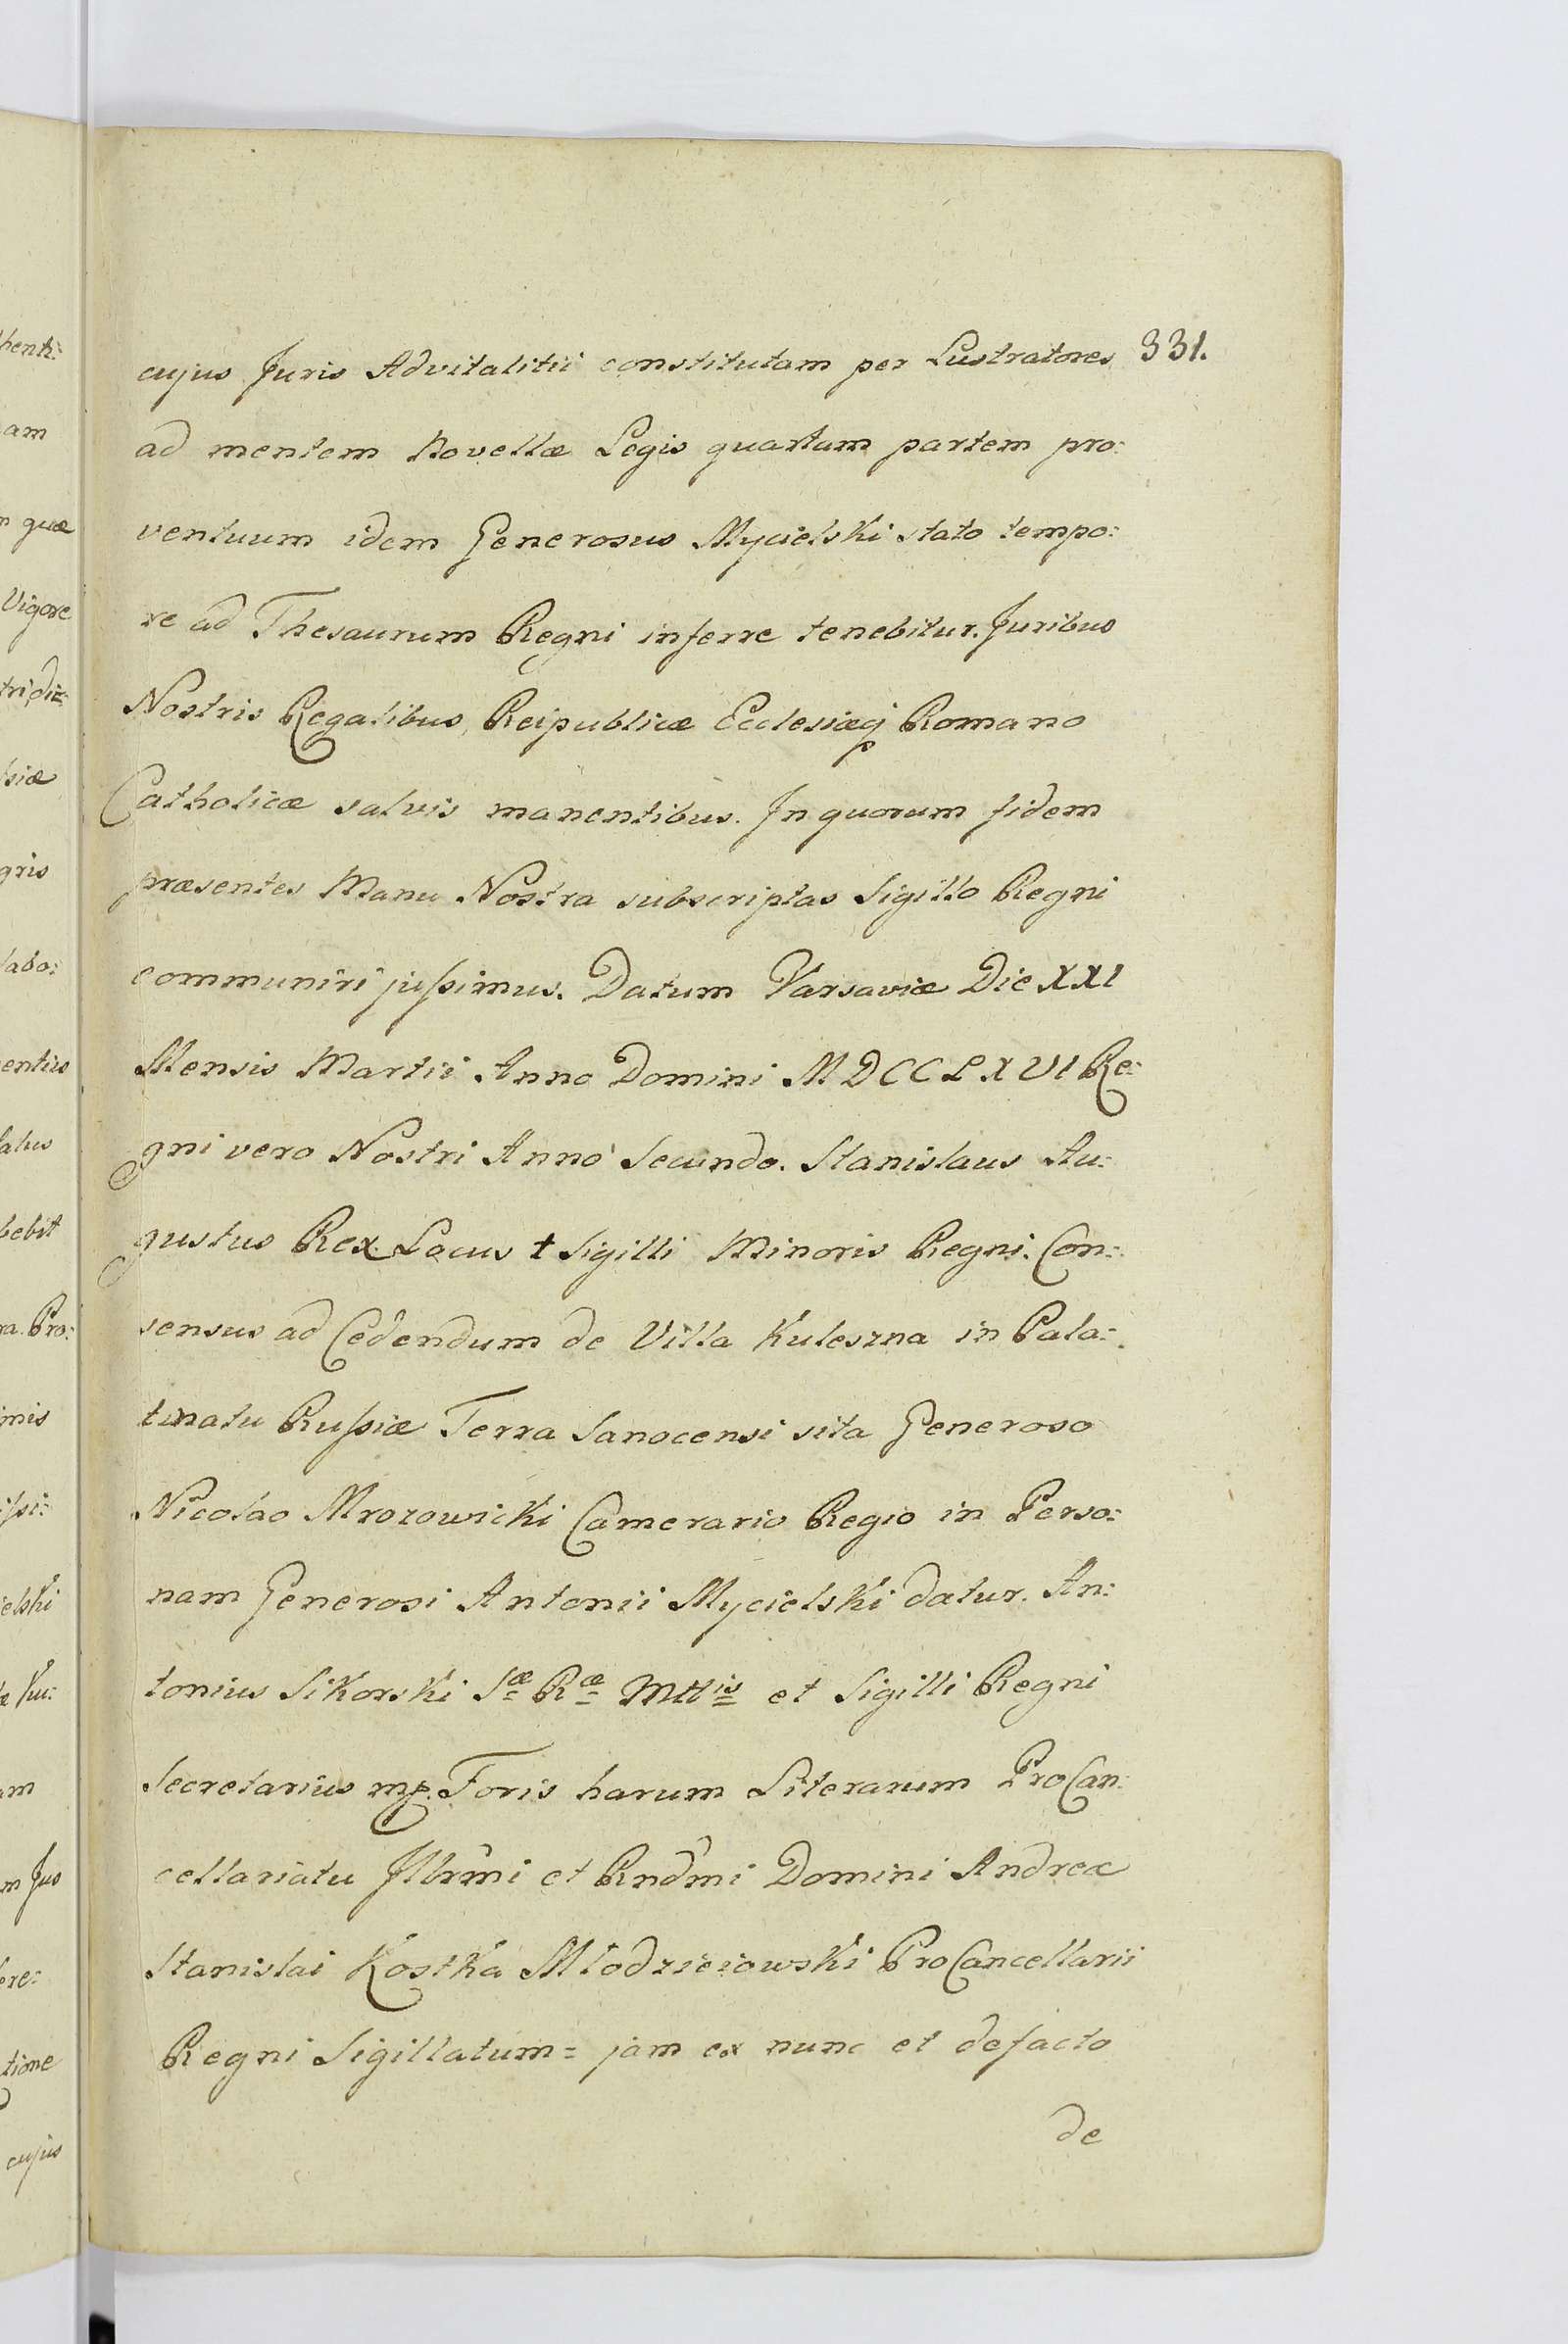 331.
cujus Juris Advitalitii constitutam per Lustratores
ad mentem Novellæ Legis quartam partem pro:
ventuum idem Generosus Mycielski stato tempo:
re ad Thesaurum Regni inferre tenebitur. Juribus
Nostris Regalibus, Reipublicæ Ecclesiæq Romano
Catholicæ salvis manentibus. In quorum fidem
præsentes Manu Nostra subscriptas Sigillo Regni
communiri jussimus. Datum Varsaviæ Die XXI
Mensis Martii Anno Domini MDCCLXVI Re:
gni vero Nostri Anno Secundo. Stanislaus Au:
gustus Rex. Locus † Sigilli Minoris Regni. Con:
sensus ad Cedendum de Villa Kuleszna in Pala:
tinatu Russiæ Terra Sanocensi sita Generoso
Nicolao Mrozowicki Camerario Regio in Perso:
nam Generosi Antonii Mycielski datur. An:
tonius Sikorski Sæ Ræ Mttis et Sigilli Regni
Secretarius mp. Foris harum Literarum ProCan:
cellariatu Illrmi et Rndmi Domini Andreæ
Stanislai Kostka Młodzieiowski ProCancellarii
Regni Sigillatum = jam ex nunc et defacto
de